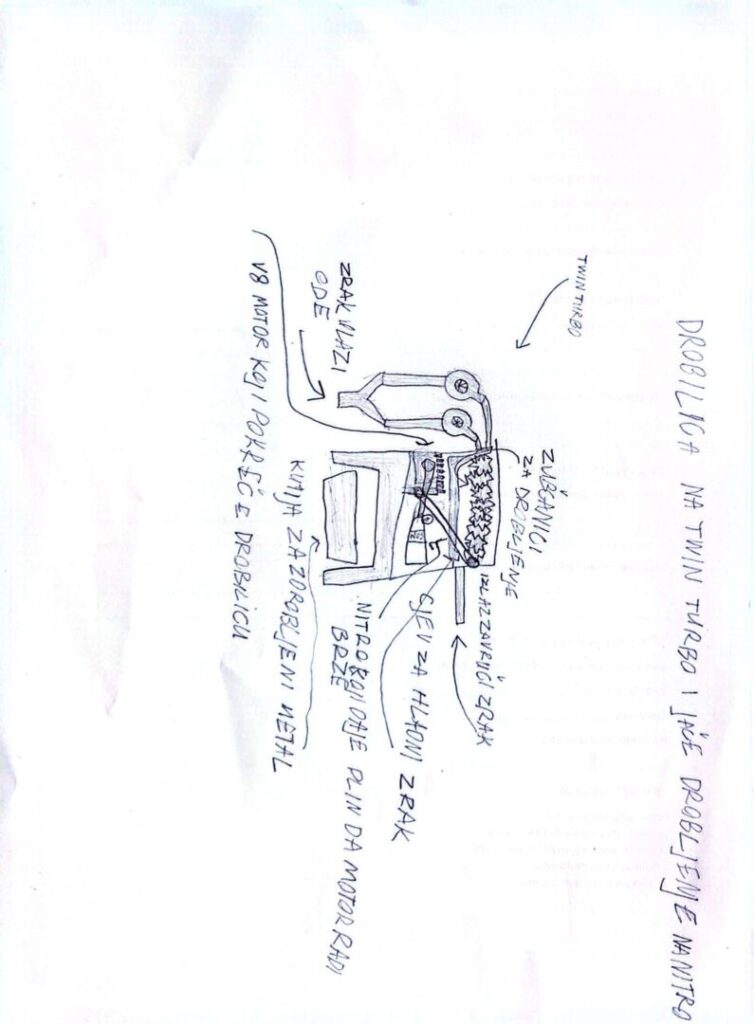 DROBILICA NA TWIN TURBO I JAČE DROBLJENJE NA NITRO
TWIN TURBO
ZUBČANICI
ZA DROBLJENJE
IZLAZ ZA VRUĆI ZRAK
ZRAK ULAZI
ODE
CJEV ZA HLADNI ZRAK
NITRO KOJI DAJE PLIN DA MOTOR RADI
BRŽE
KUTIJA ZA ZDROBLJENI METAL
V8 MOTOR KOJI POKREĆE DROBILICU